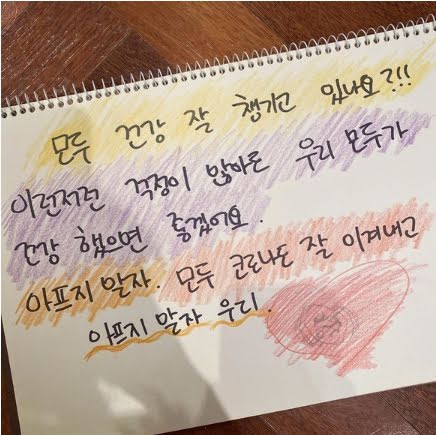 모두 건강 잘 챙기고 있나요?!!
이런저런 걱정이 많아도 우리 모두가
건강 했으면 좋겠어요.
아프지 말자. 모두 코로나도 잘 이겨내고
아프지 말자 우리.